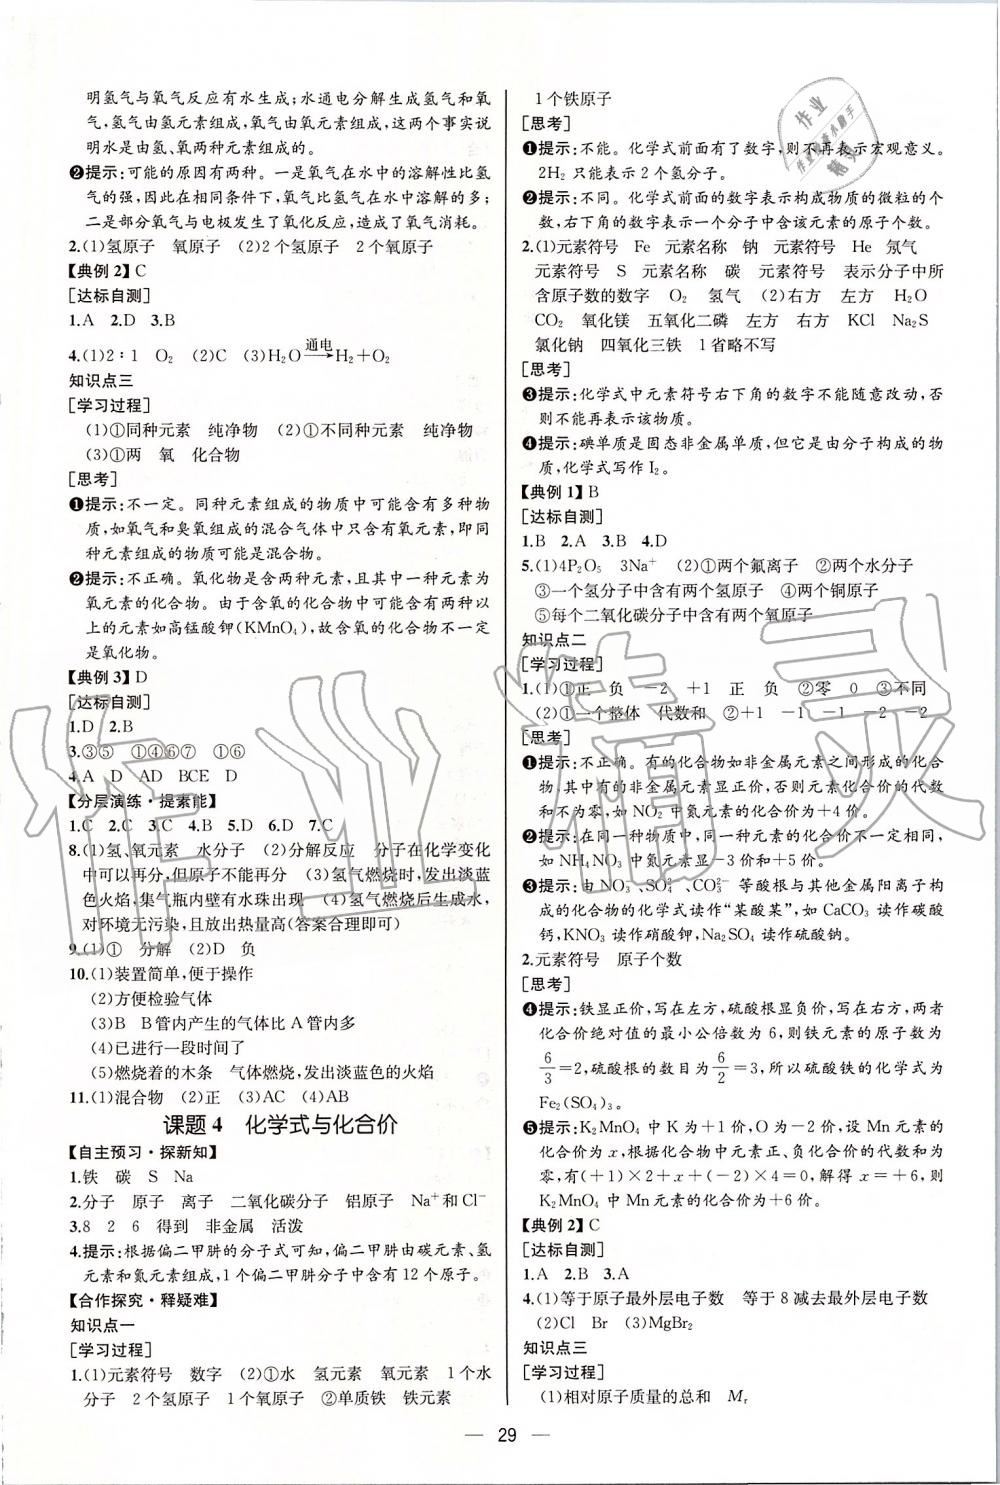 明氢气与氧气反应有水生成;水通电分解生成氢气和氧
气,氢气由氢元素组成,氧气由氧元素组成,这两个事实说
明水是由氢、氧两种元素组成的。
❷提示:可能的原因有两种。一是氧气在水中的溶解性比氢
气的强,因此在相同条件下,氧气比氢气在水中溶解的多;
二是部分氧气与电极发生了氧化反应,造成了氧气消耗。
2.(1)氢原子 氧原子 (2)2个氢原子 2个氧原子
【典例2】C
[达标自测]
1.A 2.D 3.B
4.(1)2∶1 O₂ (2)C (3)H₂O 通电→ H₂+O₂
知识点三
[学习过程]
(1)①同种元素 纯净物 (2)①不同种元素 纯净物
(3)①两 氧 化合物
[思考]
❶提示:不一定。同种元素组成的物质中可能含有多种物
质,如氧气和臭氧组成的混合气体中只含有氧元素,即同
种元素组成的物质可能是混合物。
❷提示:不正确。氧化物是含两种元素,且其中一种元素为
氧元素的化合物。由于含氧的化合物中可能含有两种以
上的元素如高锰酸钾(KMnO₄),故含氧的化合物不一定
是氧化物。
【典例3】D
[达标自测]
1.D 2.B
3.③⑤ ①④⑥⑦ ①⑥
4.A D AD BCE D
【分层演练·提素能】
1.C 2.C 3.C 4.B 5.D 6.D 7.C
8.(1)氢、氧元素 水分子 (2)分解反应 分子在化学变化
中可以再分,但原子不能再分 (3)氢气燃烧时,发出淡蓝
色火焰,集气瓶内壁有水珠出现 (4)氢气燃烧后生成水,
对环境无污染,且放出热量高(答案合理即可)
9.(1)① 分解 (2)D 负
10.(1)装置简单,便于操作
(2)方便检验气体
(3)B B管内产生的气体比A管内多
(4)已进行一段时间了
(5)燃烧着的木条 气体燃烧,发出淡蓝色的火焰
11.(1)混合物 (2)正 (3)AC (4)AB
课题4 化学式与化合价
【自主预习·探新知】
1.铁 碳 S Na
2.分子 原子 离子 二氧化碳分子 铝原子 Na⁺和Cl⁻
3.8 2 6 得到 非金属 活泼
4.提示:根据偏二甲肼的分子式可知,偏二甲肼由碳元素、氢
元素和氮元素组成,1个偏二甲肼分子中含有12个原子。
【合作探究·释疑难】
知识点一
[学习过程]
1.(1)元素符号 数字 (2)①水 氢元素 氧元素 1个水
分子 2个氢原子 1个氧原子 ②单质铁 铁元素
1个铁原子
[思考]
❶提示:不能。化学式前面有了数字,则不再表示宏观意义。
2H₂只能表示2个氢分子。
❷提示:不同。化学式前面的数字表示构成物质的微粒的个
数,右下角的数字表示一个分子中含该元素的原子个数。
2.(1)元素符号 Fe 元素名称 钠 元素符号 He 氖气
元素符号 S 元素名称 碳 元素符号 表示分子中所
含原子数的数字 O₂ 氢气 (2)右方 左方 H₂O
CO₂ 氧化镁 五氧化二磷 左方 右方 KCl Na₂S
氯化钠 四氧化三铁 1省略不写
[思考]
❸提示:化学式中元素符号右下角的数字不能随意改动,否
则不能再表示该物质。
❹提示:碘单质是固态非金属单质,但它是由分子构成的物
质,化学式写作I₂。
【典例1】B
[达标自测]
1.B 2.A 3.B 4.D
5.(1)4P₂O₅ 3Na⁺ (2)①两个氟离子 ②两个水分子
③一个氢分子中含有两个氢原子 ④两个铜原子
⑤每个二氧化碳分子中含有两个氧原子
知识点二
[学习过程]
1.(1)①正 负 −2 +1 正 负 ②零 0 ③不同
(2)①一个整体 代数和 ②+1 −1 −1 −2 −2
[思考]
❶提示:不正确。有的化合物如非金属元素之间形成的化合
物,其中有的非金属元素显正价,否则元素化合价的代数
和不为零,如NO₂中氮元素的化合价为+4价。
❷提示:在同一种物质中,同一种元素的化合价不一定相同,
如NH₄NO₃中氮元素显−3价和+5价。
❸提示:由NO₃⁻、SO₄²⁻、CO₃²⁻等酸根与其他金属阳离子构
成的化合物的化学式读作“某酸某”,如CaCO₃读作碳酸
钙,KNO₃读作硝酸钾,Na₂SO₄读作硫酸钠。
2.元素符号 原子个数
[思考]
❹提示:铁显正价,写在左方,硫酸根显负价,写在右方,两者
化合价绝对值的最小公倍数为6,则铁元素的原子数为
6/3=2,硫酸根的数目为6/2=3,所以硫酸铁的化学式为
Fe₂(SO₄)₃。
❺提示:K₂MnO₄中K为+1价,O为−2价,设Mn元素的
化合价为x,根据化合物中元素正、负化合价的代数和为
零,有(+1)×2+x+(−2)×4=0,解得x=+6,则
K₂MnO₄中Mn元素的化合价为+6价。
【典例2】C
[达标自测]
1.A 2.B 3.A
4.(1)等于原子最外层电子数 等于8减去最外层电子数
(2)Cl Br (3)MgBr₂
知识点三
[学习过程]
(1)相对原子质量的总和 Mᵣ
— 29 —
作业精灵